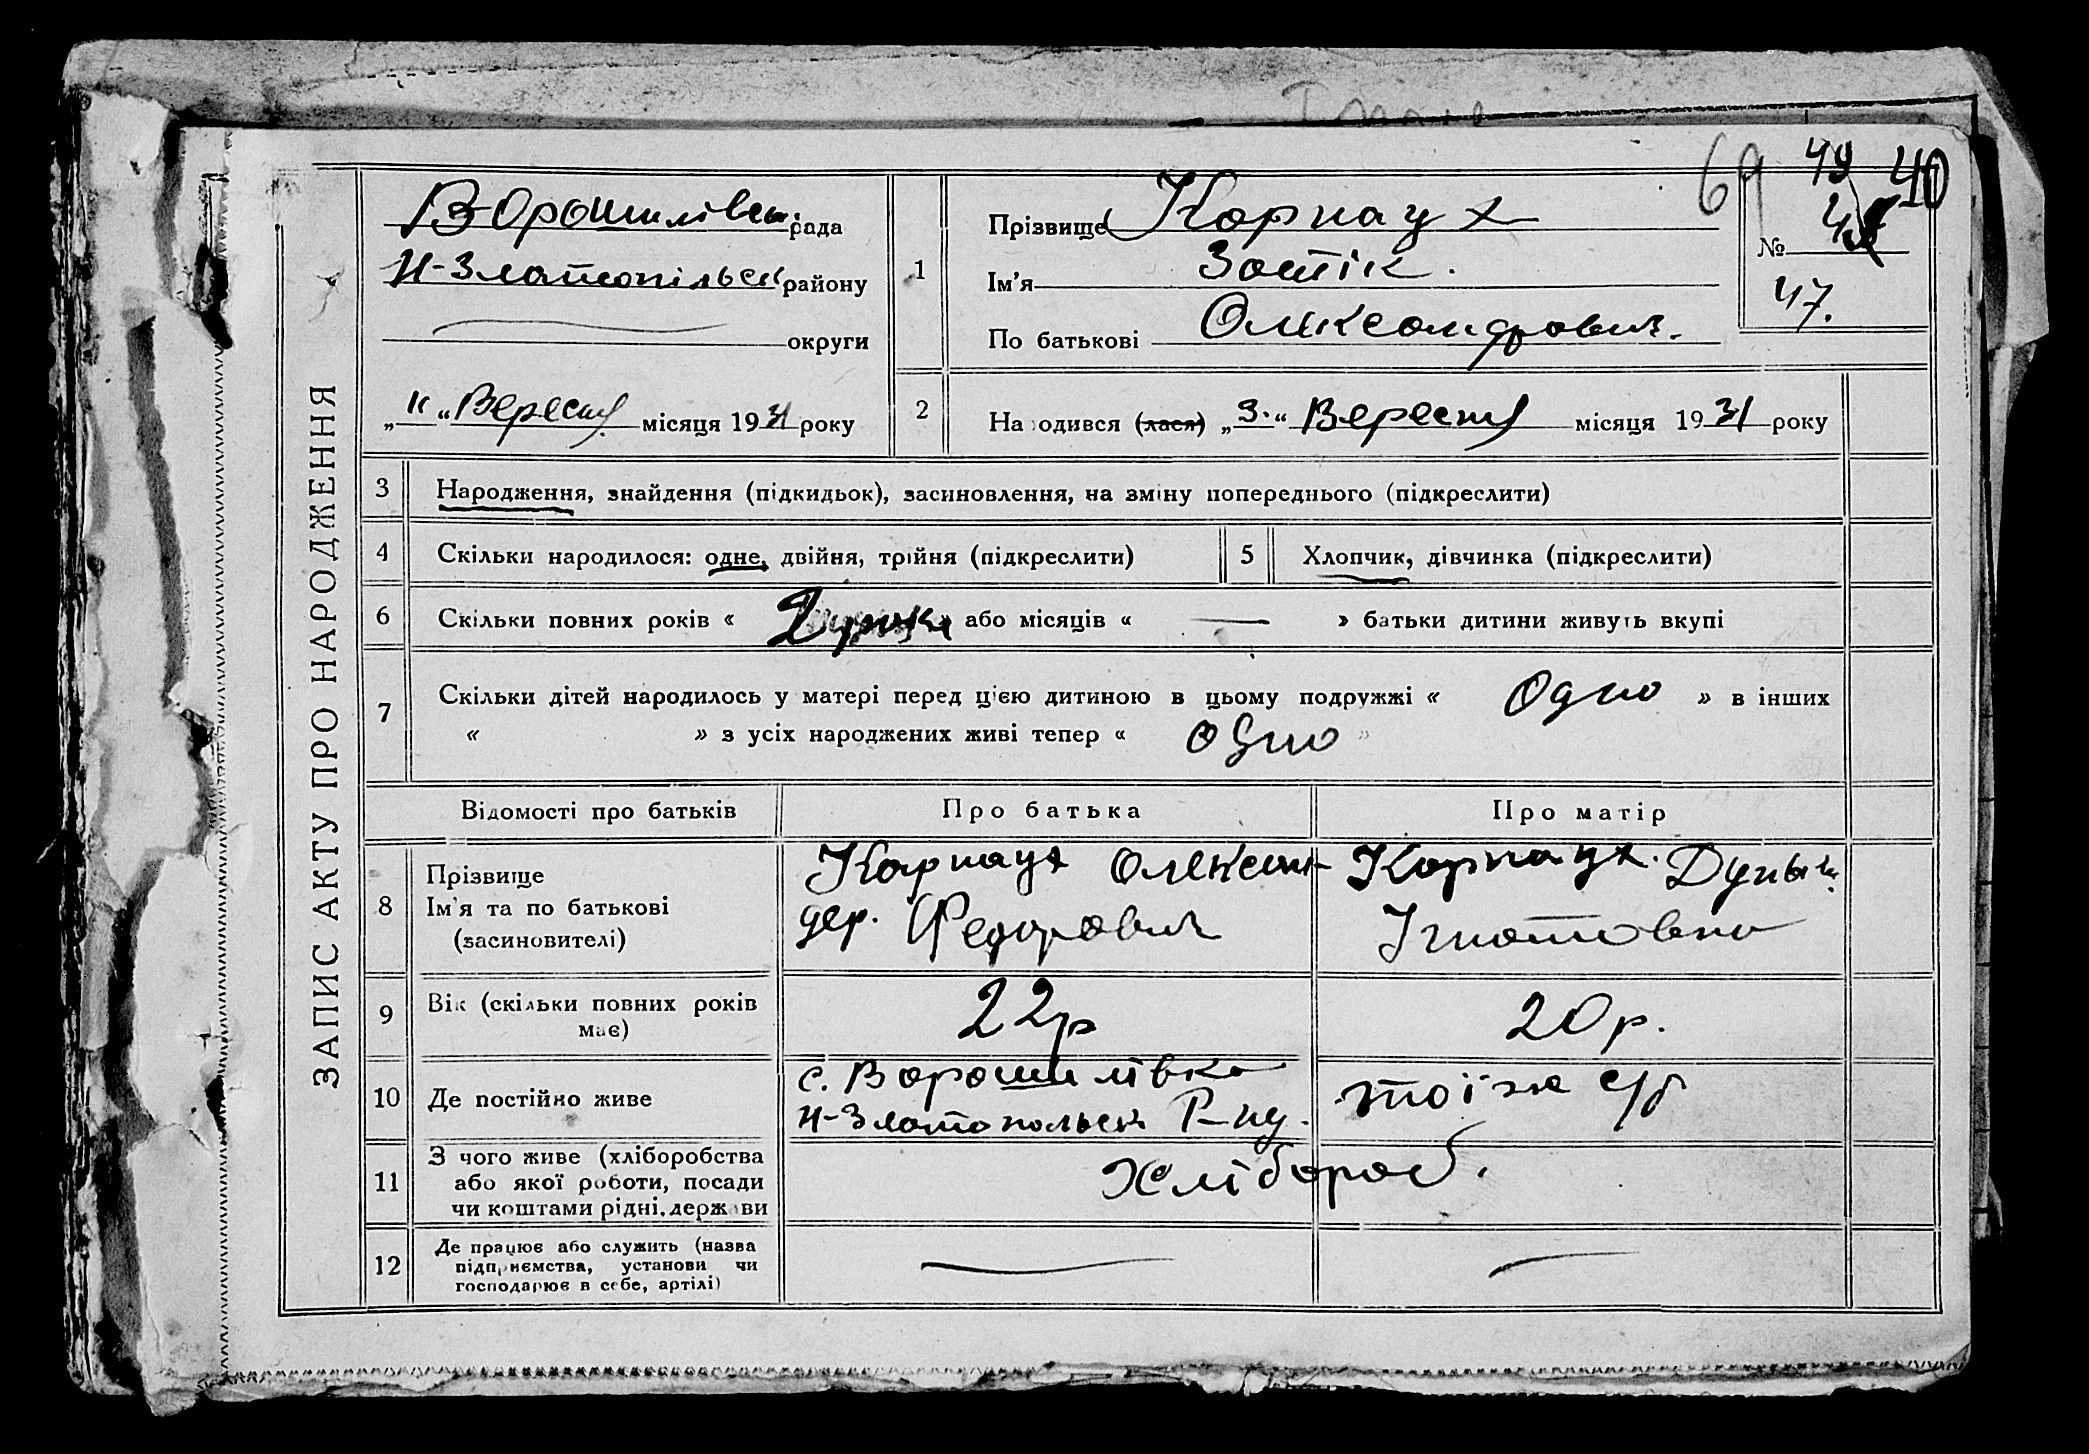 ЗАПИС АКТУ ПРО НАРОДЖЕННЯ
69 49 40
Ворошилівськ. рада
Н-Златопільськ району
округи
„11“ Вересня місяця 1931 року
1
Прізвище Корнаух
Ім'я
По батькові Олександрович.
№
47.
2
Народився (лася) „3.“ Вересня місяця 1931 року
3 Народження, знайдення (підкидьок), засиновлення, на зміну попереднього (підкреслити)
4 Скільки народилося: одне, двійня, трійня (підкреслити)
5 Хлопчик, дівчинка (підкреслити)
6 Скільки повних років « 2 роки або місяців « — » батьки дитини живуть вкупі
7 Скільки дітей народилось у матері перед цією дитиною в цьому подружжі « Одно » в інших
« » з усіх народжених живі тепер « Одно »
Відомості про батьків Про батька Про матір
8 Прізвище
Ім'я та по батькові
(засиновителі)
Карнаух Олексан-
дер. Федорович
Корнаух.
Ігнатовна
9 Вік (скільки повних років
має)
22р
20р.
10 Де постійно живе
с. Ворошилівка
Н-Златопольськ Р-ну.
тоїж с/р
11 З чого живе (хліборобства
або якої роботи, посади
чи коштами рідні, держави
Хлібороб.
12 Де працює або служить (назва
підприємства, установи чи
господарює в себе, артілі)